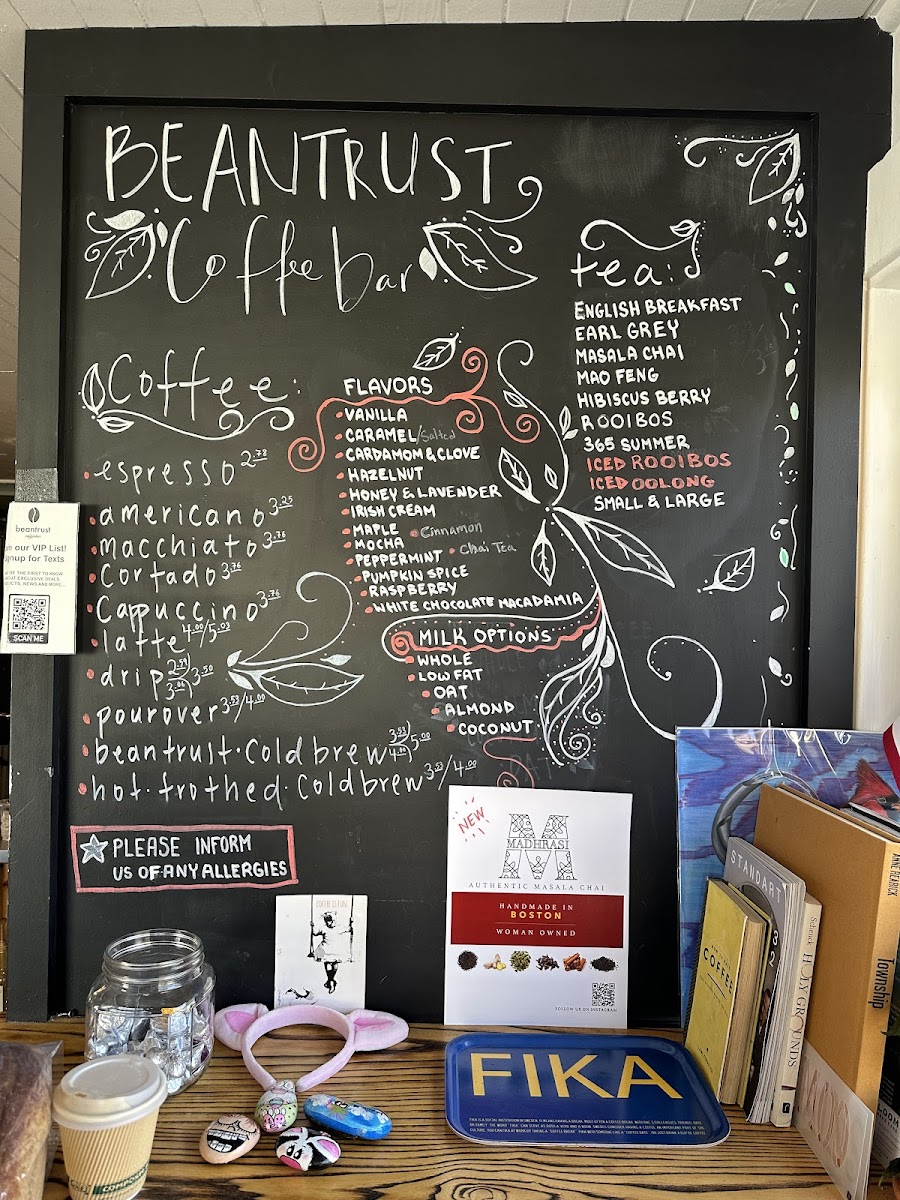 BEANTRUST
Coffee bar
tea:
ENGLISH BREAKFAST
EARL GREY
MASALA CHAI
MAO FENG
HIBISCUS BERRY
ROOIBOS
365 SUMMER
ICED ROOIBOS
ICED OOLONG
SMALL & LARGE
Coffee:
espresso 2.78
americano 3.25
macchiato 3.76
Cortado 3.76
Cappuccino 3.76
latte 4.00/5.03
drip 2.59/3.06/3.50
pourover 3.53/4.00
beantrust cold brew 3.53/4.00/5.00
hot frothed Cold brew 3.53/4.00
FLAVORS
VANILLA
CARAMEL/Salted
CARDAMOM & CLOVE
HAZELNUT
HONEY & LAVENDER
IRISH CREAM
MAPLE • Cinnamon
MOCHA
PEPPERMINT • Chai Tea
PUMPKIN SPICE
RASPBERRY
WHITE CHOCOLATE MACADAMIA
MILK OPTIONS
WHOLE
LOW FAT
OAT
ALMOND
COCONUT
PLEASE INFORM
US OF ANY ALLERGIES
beantrust
our VIP List!
up for Texts
BE THE FIRST TO KNOW
EXCLUSIVE DEALS,
NEWS AND MORE...
SCAN ME
NEW
M
MADHRASI
AUTHENTIC MASALA CHAI
HANDMADE IN
BOSTON
WOMAN OWNED
FOLLOW US ON INSTAGRAM
FIKA
COFFEE
STANDART
32
HOLY GROUNDS
ANNE REARICK
Township